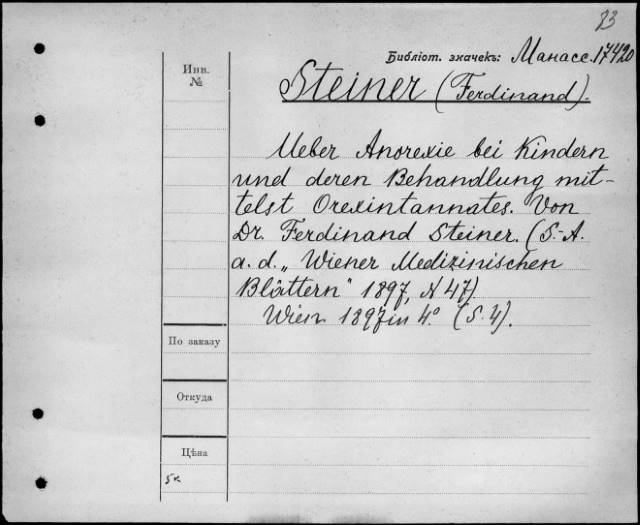 83
Библіот. значекъ: Манасс. 17420
Инв.
№
Steiner (Ferdinand).
Ueber Anorexie bei Kindern
und deren Behandlung mit-
telst Orexintannates. Von
Dr. Ferdinand Steiner. (S.-A.
a. d. „Wiener Medizinischen
Blättern" 1897, N 47)
Wien 1897 in 4° (S. 4).
По заказу
Откуда
Цѣна
5к